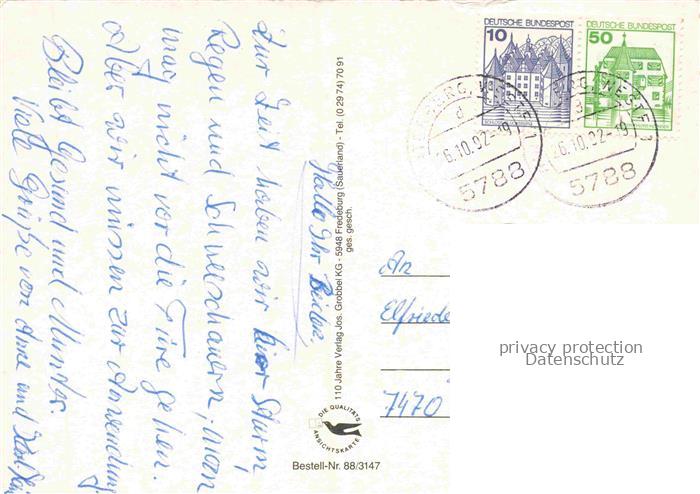 Hallo Ihr Beiden
Zur Zeit haben wir hier Sturm,
Regen und Schneeschauern, man
mag nicht vor die Türe gehen.
aber wir müssen zur Anwendung
Bleibt Gesund und Munter.
Viele Grüße von Anne und Karl
110 Jahre Verlag Jos. Grobbel KG - 5948 Fredeburg (Sauerland) - Tel. (0 29 74) 70 91
ges. gesch.
10 DEUTSCHE BUNDESPOST
50 DEUTSCHE BUNDESPOST
6.10.92-19
5788
6.10.92-19
5788
An
Elfriede
7470
privacy protection
Datenschutz
DIE QUALITÄTS
ANSICHTSKARTE
Bestell-Nr. 88/3147